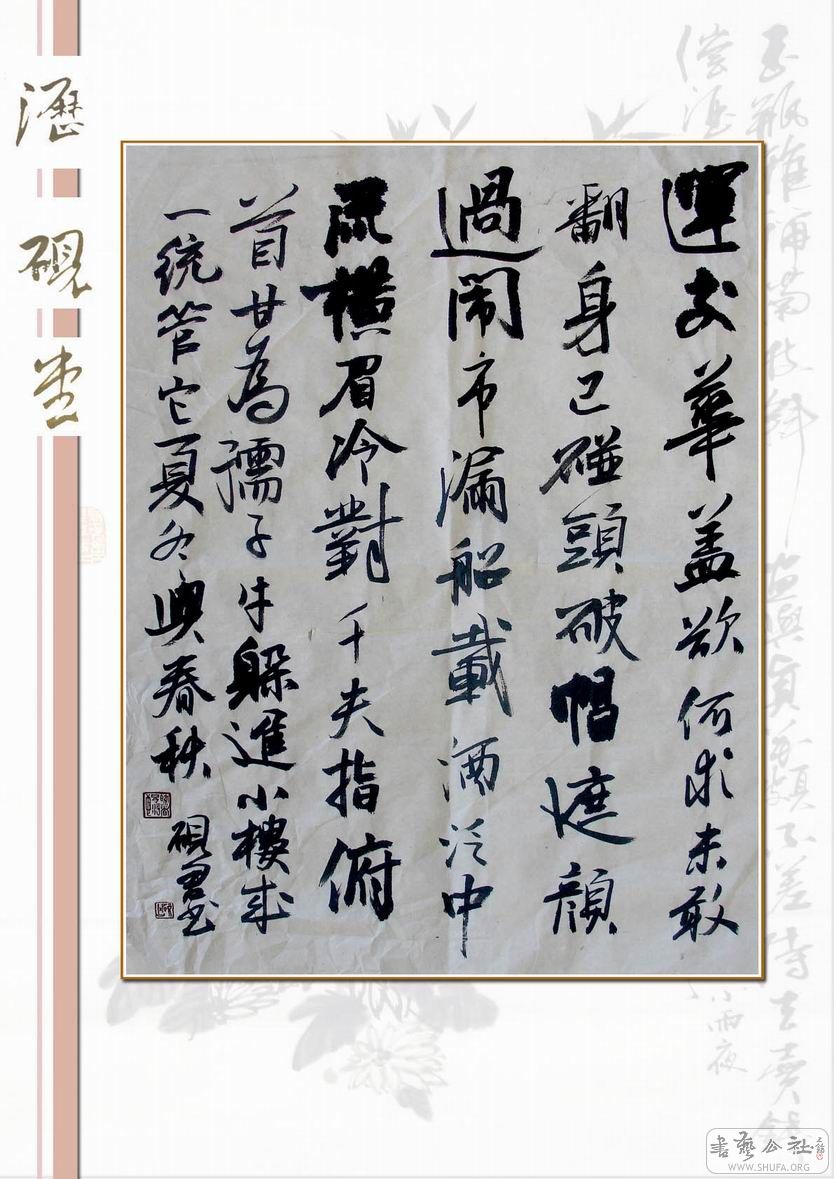 瀝硯堂
運交華盖欲何求未敢
翻身已碰頭破帽遮顔
過鬧市漏船載酒泛中
流橫眉冷對千夫指俯
首甘為孺子牛躲進小樓成
一統管它夏冬與春秋
書藝公社
WWW.SHUFA.ORG